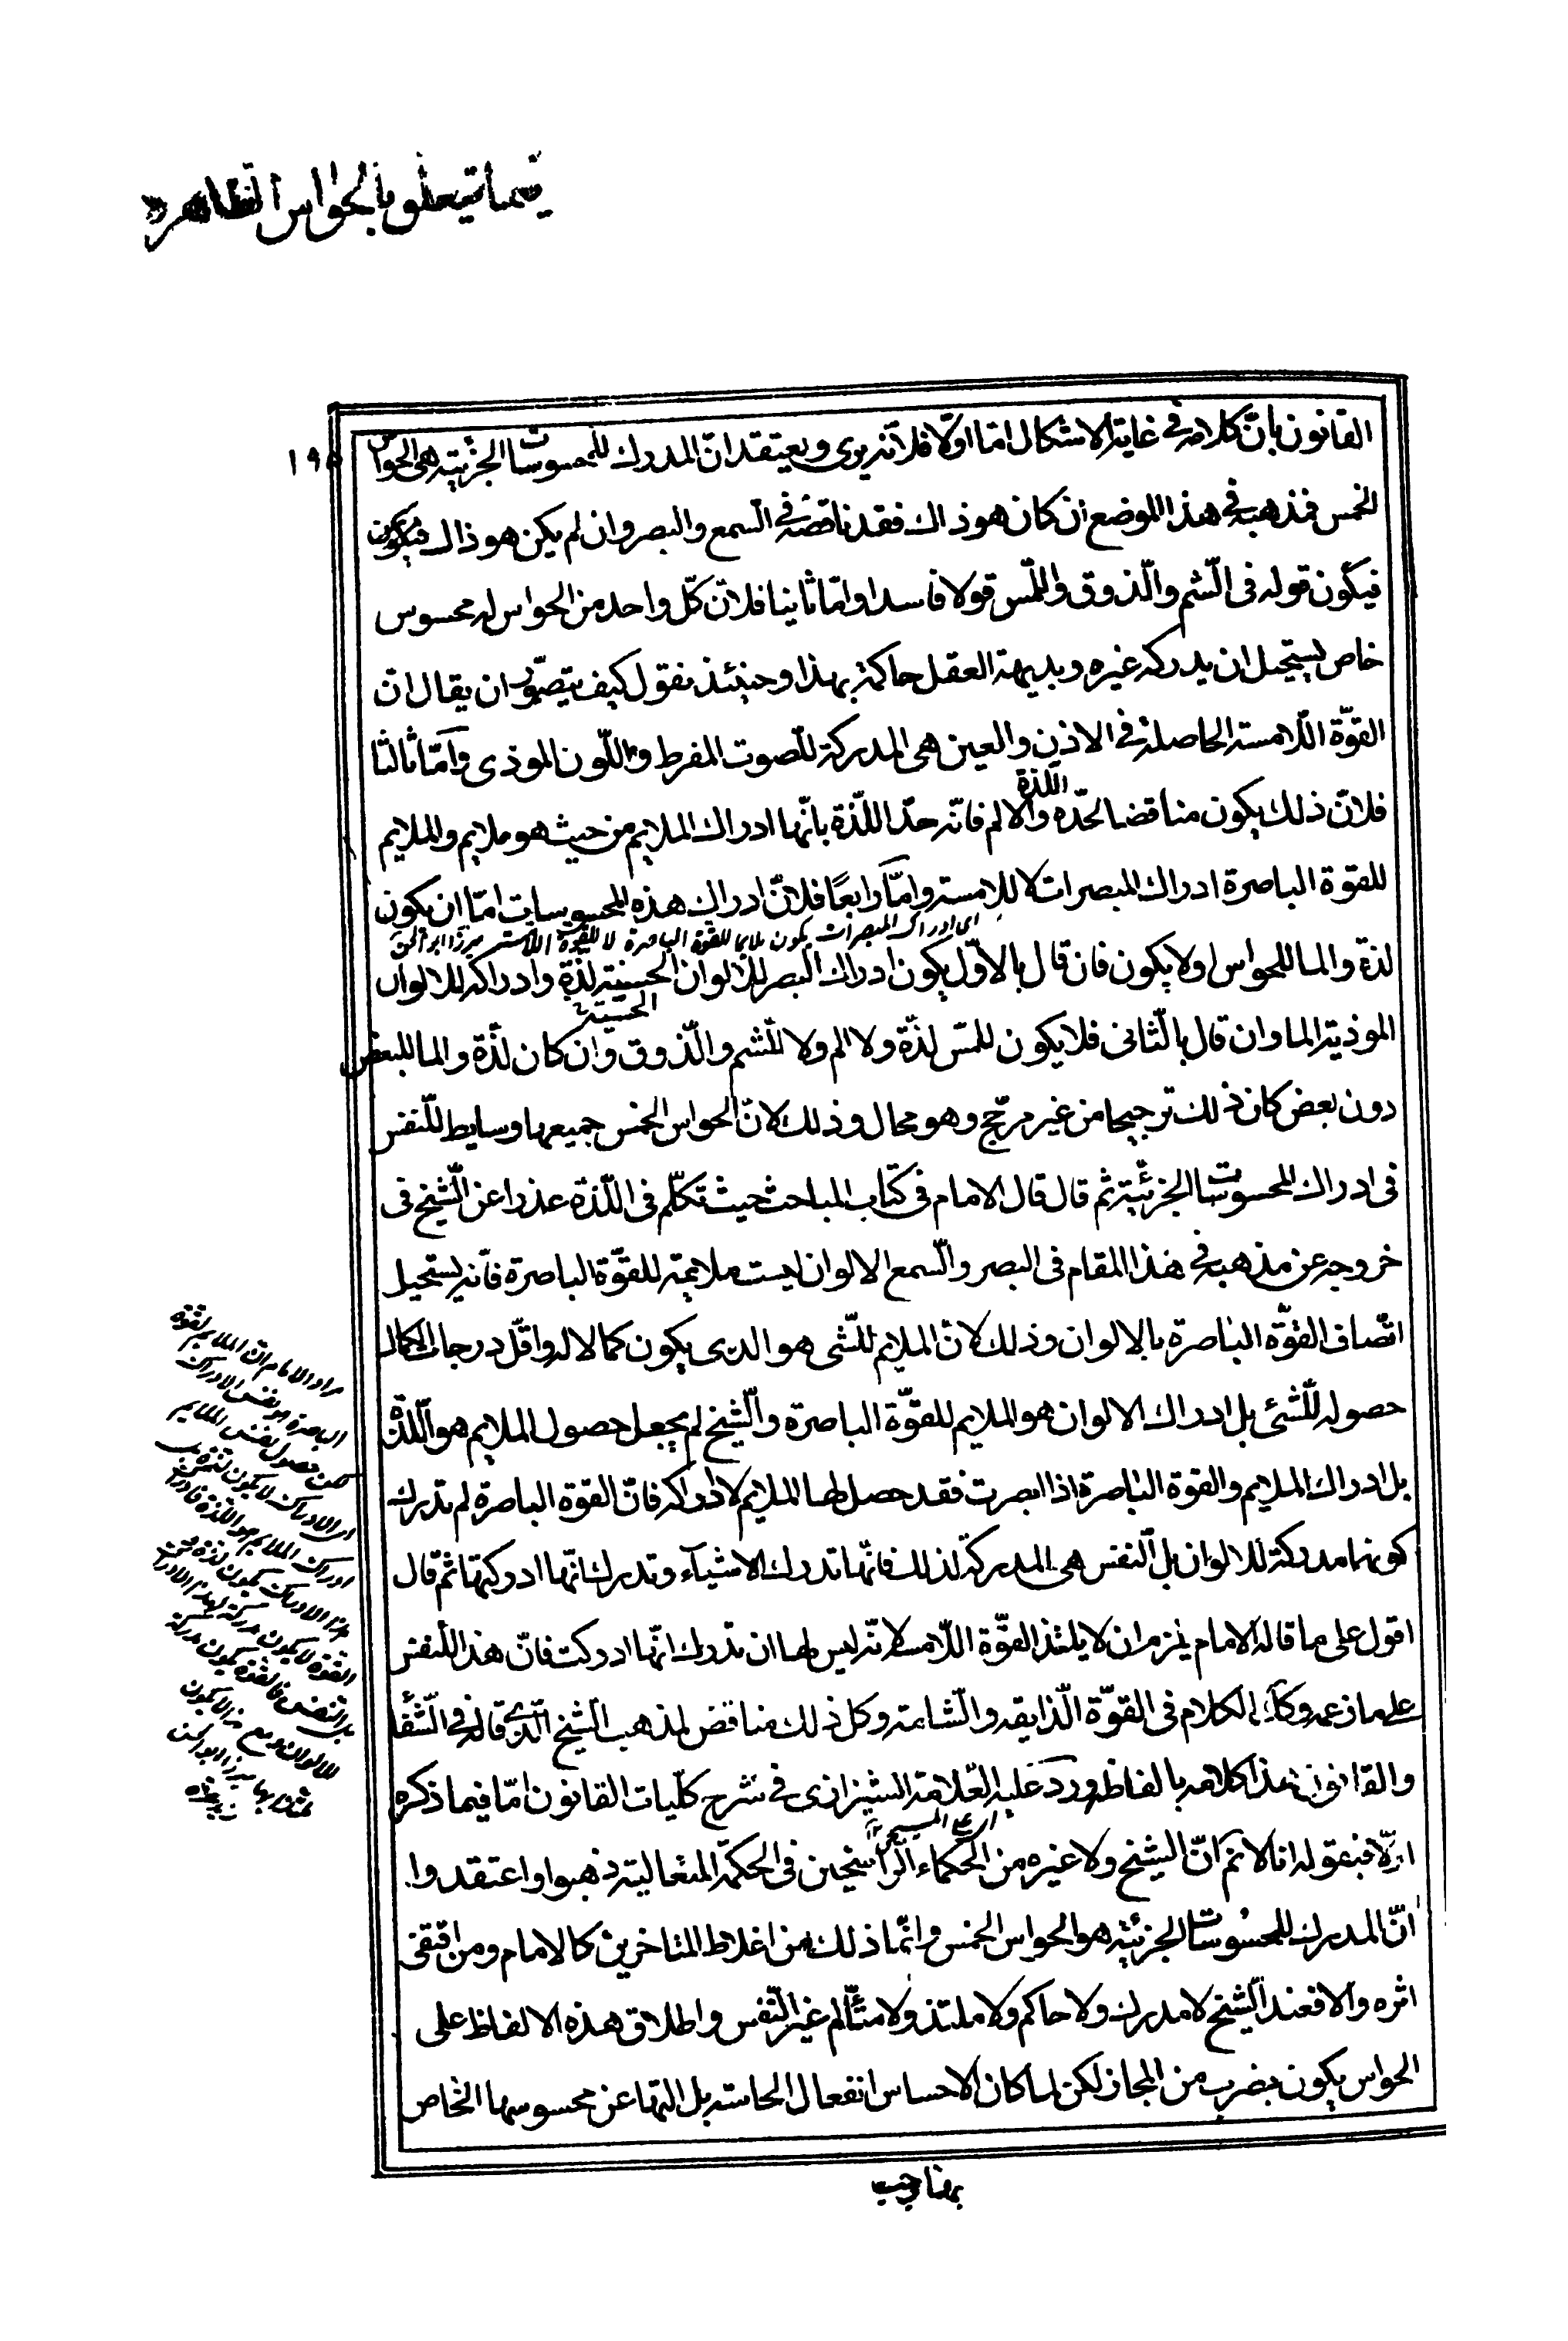 فیما یتعلق بالحواس الظاهره
۱۹۸
القانون بانّ کلامه فی غایة الاشکال امّا اوّلا فلانّه یری ویعتقد انّ المدرک للمحسوسات الجزئیته هی الحواس
الخمس فمذهبه فی هذا الموضع ان کان هو ذاک فقد ناقضه فی السمع والبصر وان لم یکن هو ذاک فیکون
فیکون قوله فی الشم والذوق واللمس قولا فاسدا وامّا ثانیا فلانّ کلّ واحد من الحواس له محسوس
خاص یستحیل ان یدرکه غیره وبدیهة العقل حاکمة بهذا وحینئذ نقول کیف یتصوّر ان یقال انّ
القوّة اللامسة الحاصلة فی الاذن والعین هی المدرکة للصوت المفرط واللّون الموذی وامّا ثالثا
اللذة
فلانّ ذلک یکون مناقضا لحدّه والالم فانّه حدّ اللذّة بانّها ادراک الملایم من حیث هو ملایم والملایم
للقوة الباصرة ادراک المبصرات لا للامسة وامّا رابعًا فلانّ ادراک هذه المحسوسات امّا ان یکون
ای ادراک المبصرات یکون ملایما للقوة الباصرة لا للقوة اللامسة میرزا ابو الحسن
لذة والما للحواس او لا یکون فان قال بالاوّل یکون ادراک البصر للالوان الحسنیته لذّة وادراکه للالوان
الحسنة
الموذیة الما وان قال بالثانی فلا یکون للمس لذّة ولا الم ولا للشم والذوق وان کان لذّة والما للبعض
دون بعض کان ذلک ترجیحا من غیر مرجّح وهو محال وذلک لانّ الحواس الخمس جمیعها وسایط للنفس
فی ادراک المحسوسات الجزئیّة ثم قال قال الامام فی کتاب المباحث حیث تکلّم فی اللّذة عذرا عن الشیخ فی
خروجه عن مذهبه فی هذا المقام فی البصر والسمع الالوان لیست ملایمة للقوّة الباصرة فانّه یستحیل
اتّصاف القوّة الباصرة بالالوان وذلک لانّ الملایم للشی هو الذی یکون کمالا له واقلّ درجات الکمال
حصوله للشئ بل ادراک الالوان هو الملایم للقوّة الباصرة والشیخ لم یجعل حصول الملایم هو اللّذة
بل ادراک الملایم والقوة الباصرة اذا ابصرت فقد حصل لها الملایم لا ادراکه فانّ القوة الباصرة لم تدرک
کونها مدرکة للالوان بل النفس هی المدرکة لذلک فانّها تدرک الاشیآء وتدرک انّها ادرکتها ثم قال
اقول علی ما قاله الامام یلزم ان لا یلتذ القوّة اللامسة لانّه لیس لها ان تدرک انّها ادرکت فانّ هذا للنفس
علی ما زعمه وکذا الکلام فی القوّة الذایقه والشامة وکل ذلک مناقض لمذهب الشیخ الذی قاله فی الشفا
والقانون هذا کلامه بالفاظه ورد علیه العلامة الشیرازی فی شرح کلّیات القانون امّا فیما ذکره
ای علی المسیحی
اوّلا فبقوله انا لا نم انّ الشیخ ولا غیره من الحکماء الراسخین فی الحکمة المتعالیة ذهبوا واعتقدوا
انّ المدرک للمحسوسات الجزئیّة هو الحواس الخمس وانّما ذلک من اغلاط المتاخرین کالامام ومن اقتفی
اثره والا فعند الشیخ لا مدرک ولا حاکم ولا ملتذ ولا متألم غیر النّفس واطلاق هذه الالفاظ علی
الحواس یکون بضرب من المجاز لکن لما کان الاحساس انفعال الحاسة بل التها عن محسوسها الخاص
مراد الامام انّ الملایم لقوة
الباصرة هو نفس الادراک
لکن حصول نفس الملایم
ای الادراک لا یکون لذة بل
ادراک الملایم هو اللذة فادراک
هذا الادراک یکون لذة
القوة لا یکون مدرکة لهذا الادراک
بل النفس